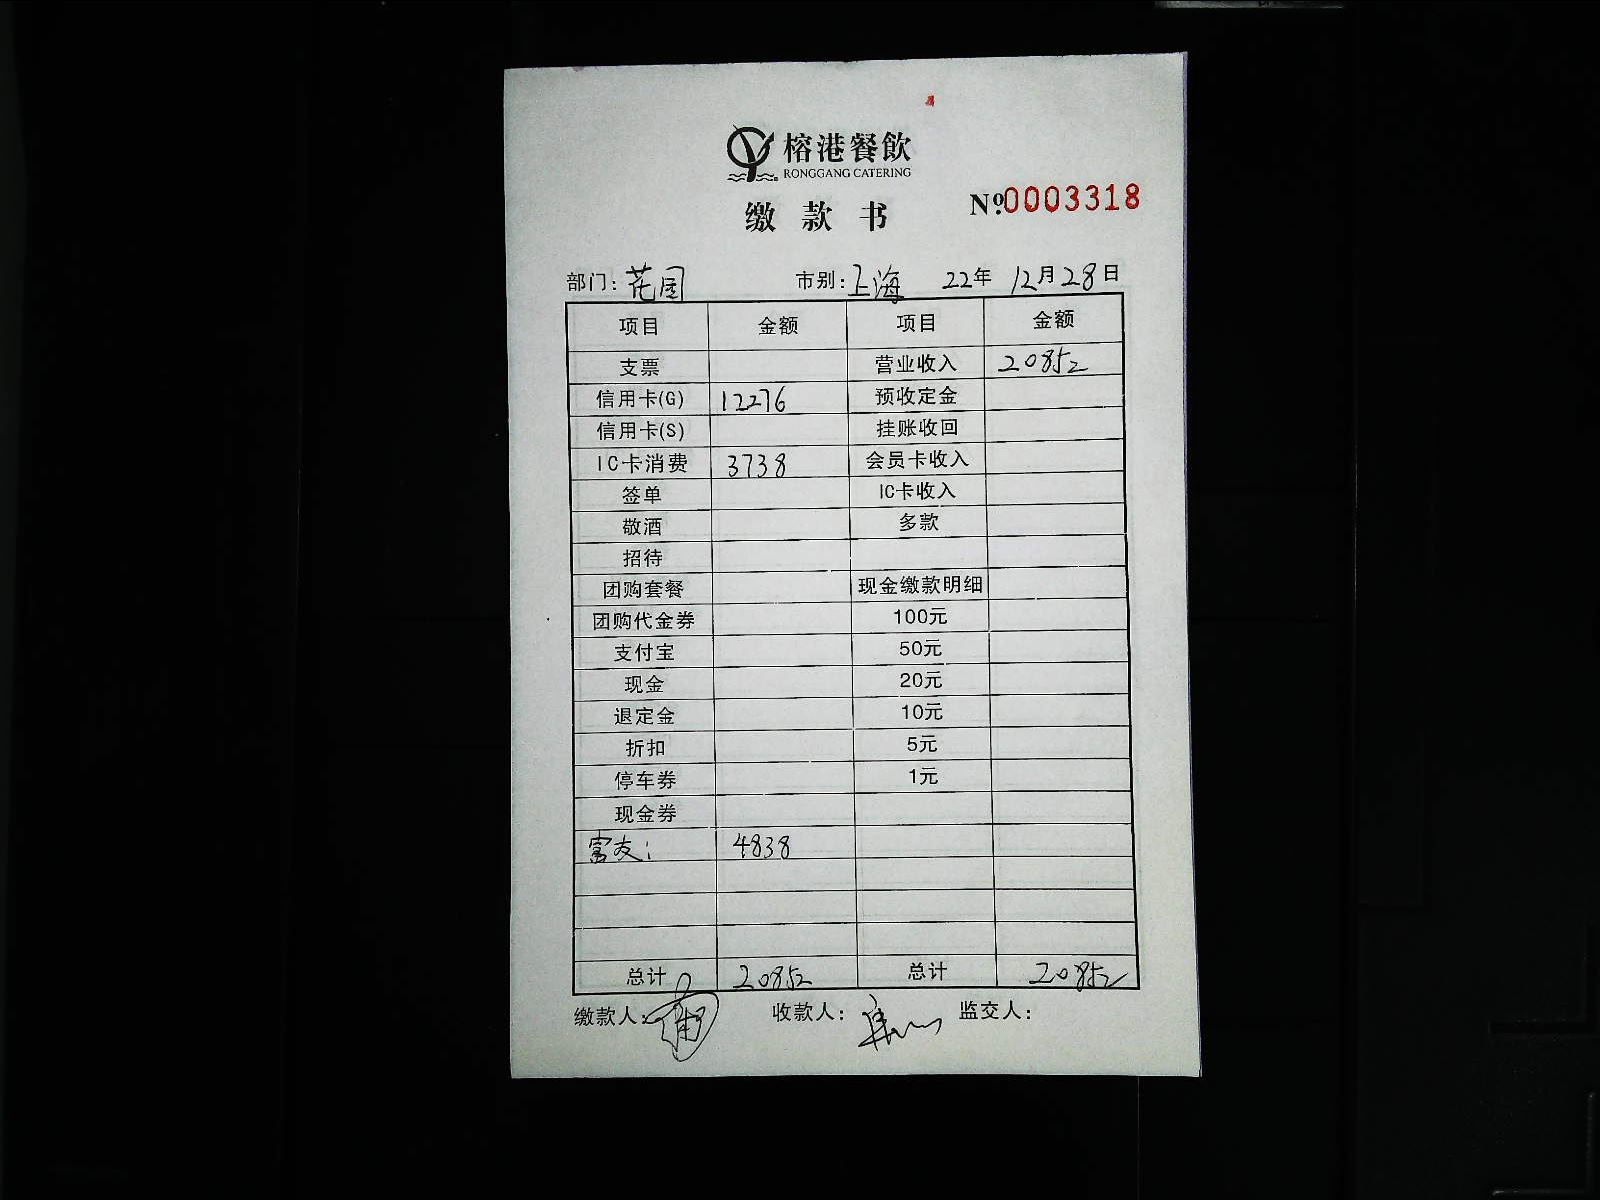 榕港餐飲
RONGGANG CATERING
缴款书
№0003318
部门：花园 市别：上海 22年 12月28日
项目 金额 项目 金额
支票 营业收入 20852
信用卡(G) 12276 预收定金
信用卡(S) 挂账收回
IC卡消费 3738 会员卡收入
签单 IC卡收入
敬酒 多款
招待
团购套餐 现金缴款明细
团购代金券 100元
支付宝 50元
现金 20元
退定金 10元
折扣 5元
停车券 1元
现金券
富友： 4838
总计 20852 总计 20852
缴款人： 收款人： 监交人：